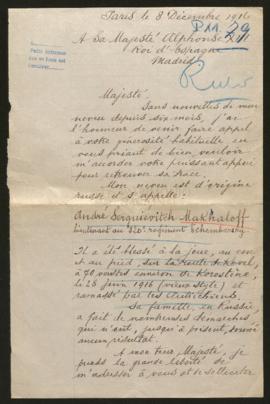 Paris le 8 Décembre 1916
A Sa Majesté Alphonse XIII
Roi d'Espagne
Madrid
Majesté.
Sans nouvelles de mon
neveu depuis six mois, j'ai
l'honneur de venir faire appel
à votre générosité habituelle en
vous priant de bien vouloir
m'accorder votre puissant appui
pour retrouver sa trace.
Mon neveu est d'origine
russe et s'appelle:
André Serguiévitch Makhaloff
lieutenant au régiment
Il a été blessé à la joue, au cou
et au pied, sur la route de Kovel,
à 70 verstes environ de
le 28 juin 1916 (vieux style) et
ramassé par les Autrichiens.
Sa famille, en Russie,
a fait de nombreuses démarches
qui n'ont, jusqu'à présent, donné
aucun résultat.
A mon tour Majesté, je
prends la grande liberté de
m'adresser à vous et de solliciter